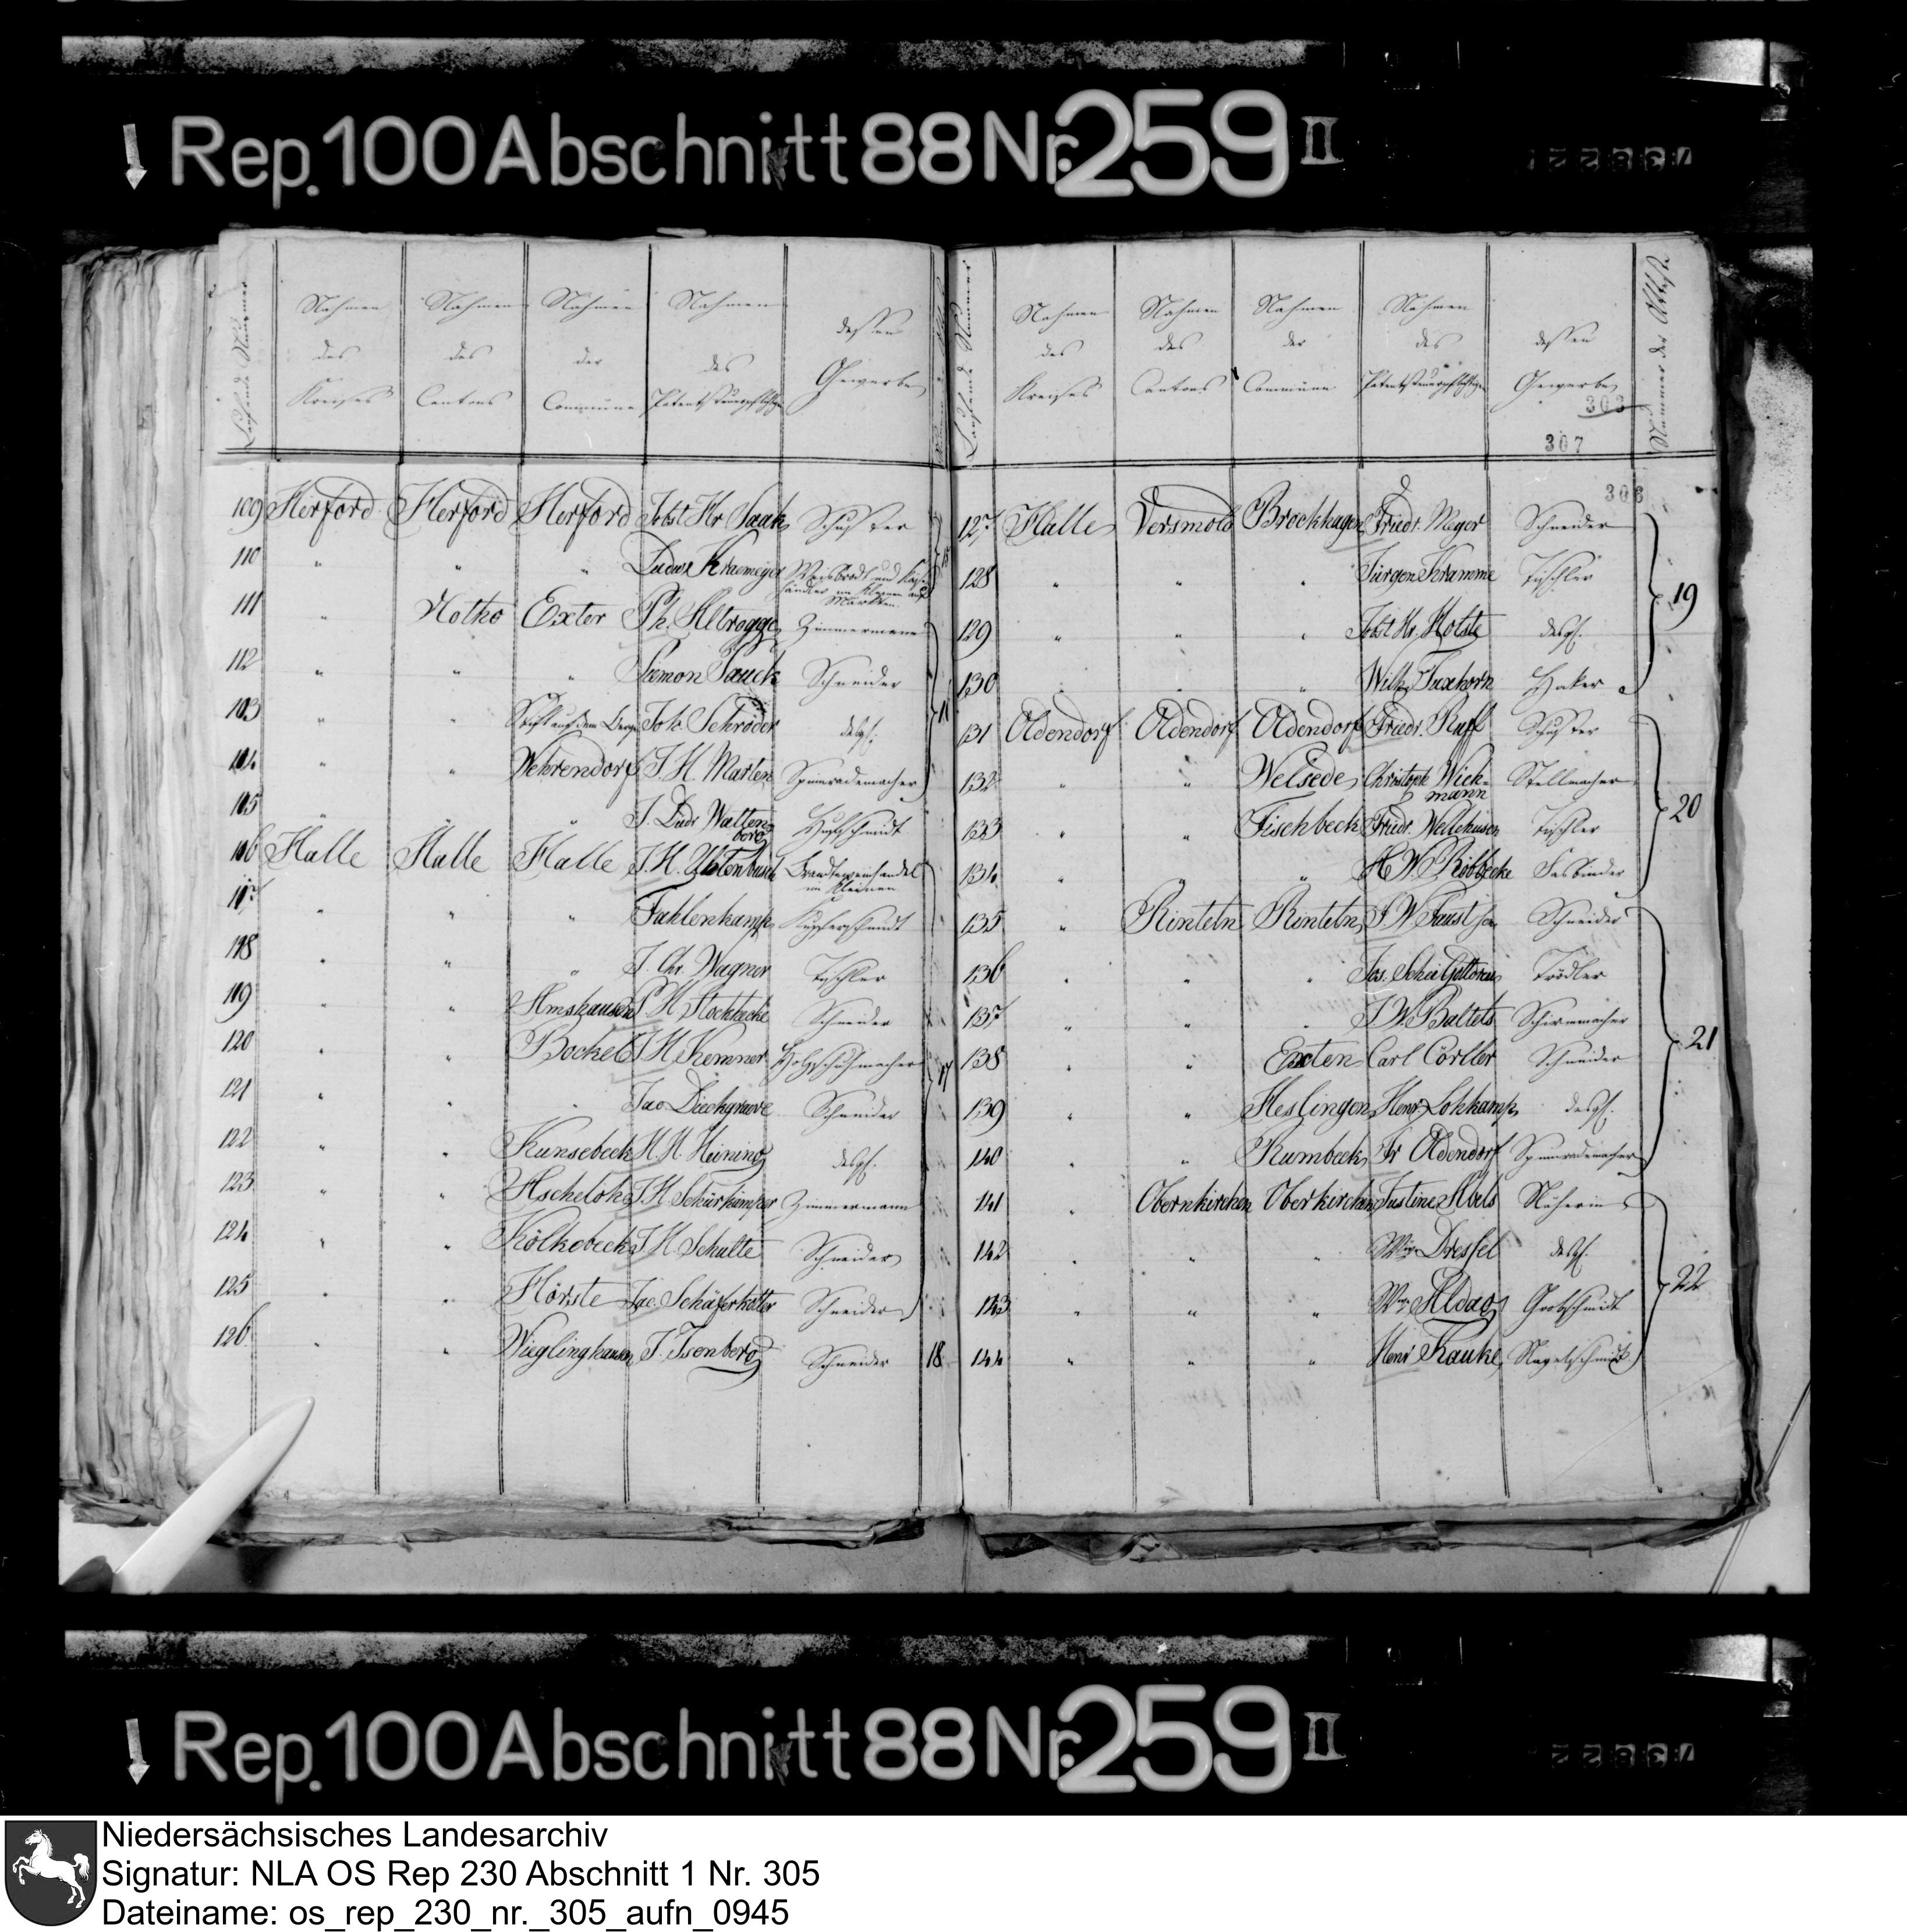 Rep. 100 Abschnitt 88 Nr. 259 II
73822
Laufende Nummer
Nahmen des Kreises
Nahmen des Cantons
Nahmen der Commüne
Nahmen des Patentsteuerpflichtigen
dessen Gewerbe
109 Herford Herford Herford Jobst Hr. Saak Schuster
110 " " " Ludw. Kraemeyer
im Kleinen auf
Märkten.
15
111 " Vlotho Exter Ph. Altrogge Zimmermann
112 " " " Simon Pauck Schneider
113 " " Joh. Schröder desgl.
16
114 " " Wehrendorf J. H. Marten Spinnrademacher
115 " " " J. Ludr Watten
berg Hufschmidt
116 Halle Halle Halle J. H. Brandteweinhandel
im Kleinen
117 " " " Fahlenkamp Kupferschmidt
118 " " " J. Chr. Wagner Tischler
119 " " Amshausen P. H. Stockhecke Schneider
120 " " Bockel J H Kemner Holzschuhmacher
17
121 " " " Jac Dieckgraeve Schneider
122 " " Kunsebeck H. H. Heining desgl.
123 " " Ascheloh J. H. Schürkamper Zimmermann
124 " " Kölkebeck J H Schulte Schneider
125 " " Hörste Jac. Schäferkötter Schneider
126 " " Wieglinghausen J. Isenberg Schneider 18
Laufende Nummer
Nahmen des Kreises
Nahmen des Cantons
Nahmen der Commüne
Nahmen des Patentsteuerpflichtigen
dessen Gewerbe
Nummer der Atteste
303
307
308
127 Halle Versmold Brockhagen Friedr. Meyer Schneider
128 " " " Jürgen Kramme Tischler
19
129 " " " Jobst Hr. Holste desgl.
130 " " " Wilh. Tuxhorn Haker
131 Oldendorf Oldendorf Oldendorf Friedr. Ruff Schuster
132 " " Welsede Christoph Wich-
mann Stellmacher
20
133 " " Fischbeck Friedr. Weltehusen Tischler
134 " " " H. W. Röbbecke Fasbinder
135 " Rinteln Rinteln J. W. Faust Schneider
136 " " " Trödler
137 " " " J. W. Baltets Schirmmacher
21
138 " " Exten Carl Cörller Schneider
139 " " Heslingen Henr. Lohkamp desgl.
140 " " Rumbeck Fr Oldendorf Spinnrademacher
141 " Obernkirchen Oberkirchen Justine Abels Näherin
142 " " " Wwe Dressel desgl.
22
143 " " " Wwe Aldag Grobschmidt
144 " " " Henr Kauke Nagelschmidt
Rep. 100 Abschnitt 88 Nr. 259 II
73822
Niedersächsisches Landesarchiv
Signatur: NLA OS Rep 230 Abschnitt 1 Nr. 305
Dateiname: os_rep_230_nr._305_aufn_0945